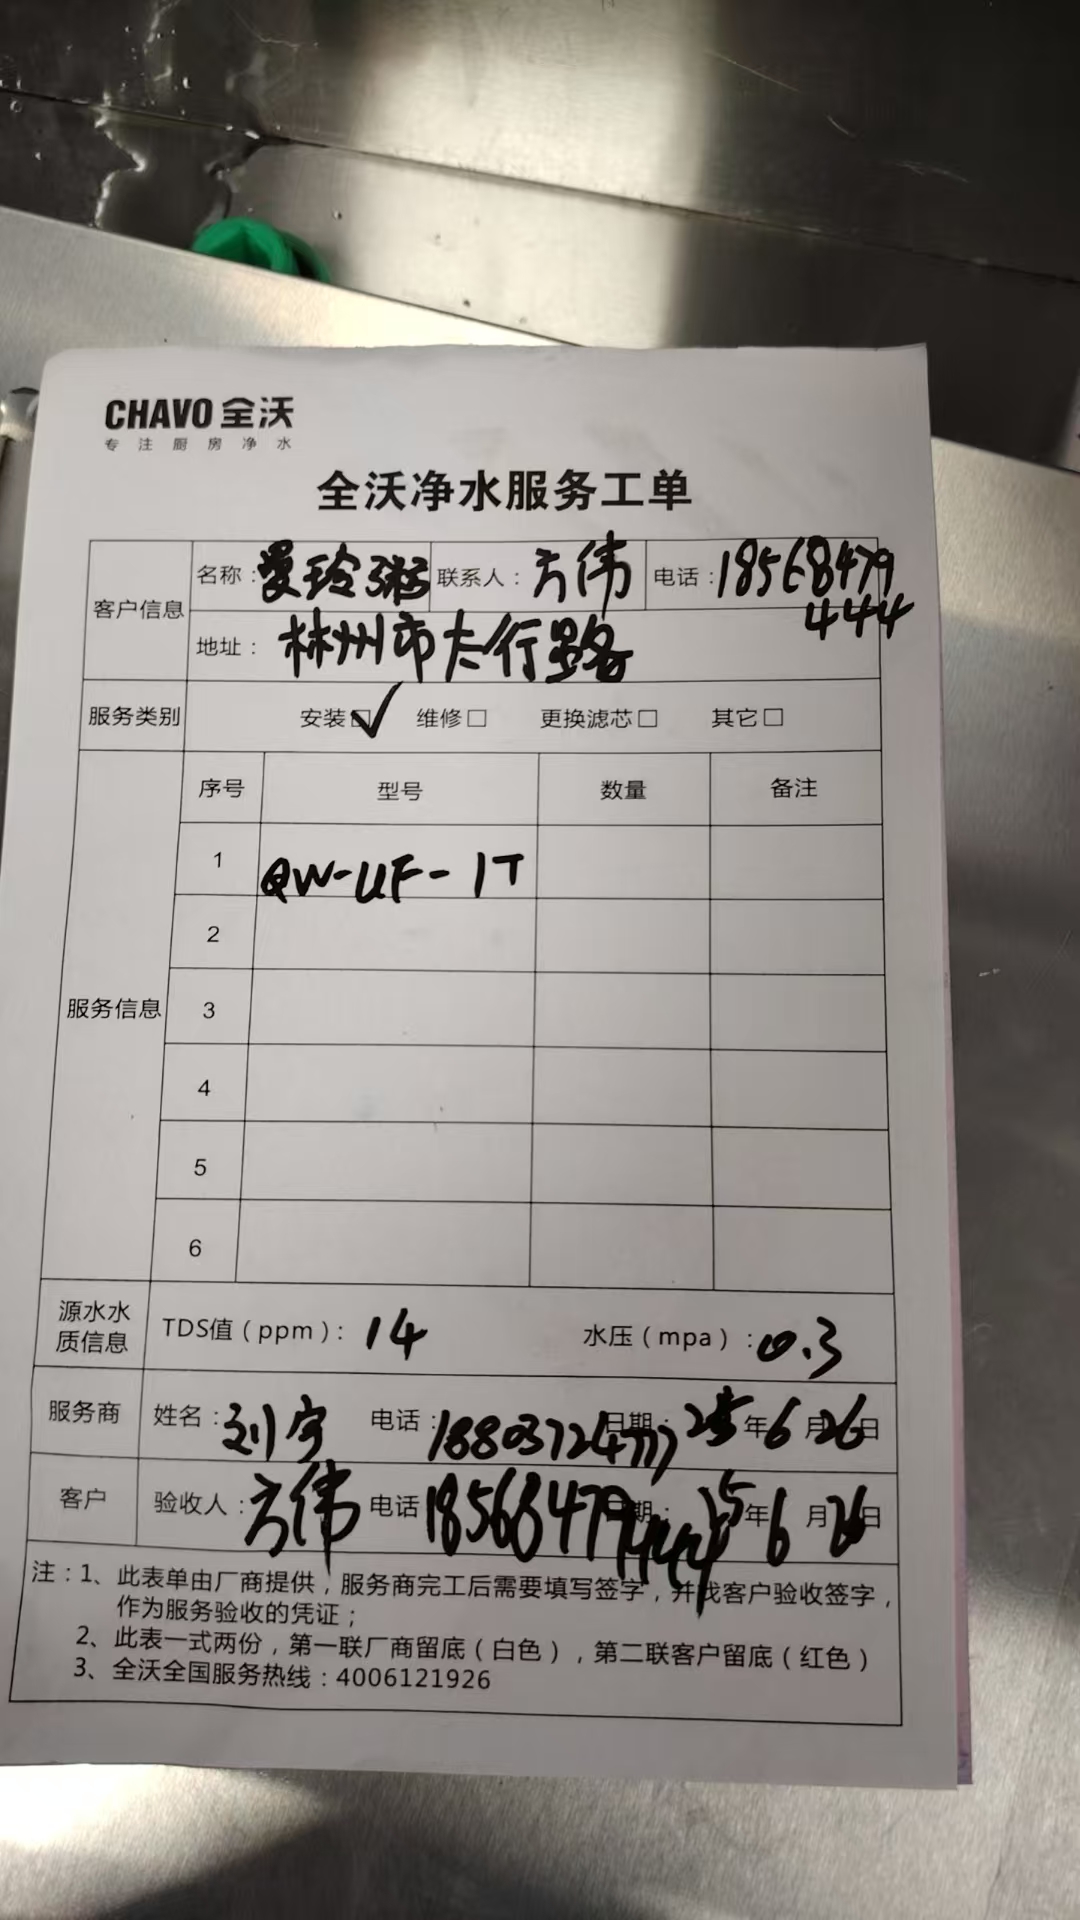 CHAVO 全沃
专注厨房净水
全沃净水服务工单
客户信息
名称：曼玲粥 联系人：方伟 电话：18568479444
地址：林州市太行路
服务类别 安装☑ 维修□ 更换滤芯□ 其它□
服务信息
序号 型号 数量 备注
1 QW-UF-1T
2
3
4
5
6
源水水质信息 TDS值（ppm）：14 水压（mpa）：0.3
服务商 姓名：刘宇 电话：18803724777 日期：25年6月26日
客户 验收人：方伟 电话 18568479444 日期：25年6月26日
注：1、此表单由厂商提供，服务商完工后需要填写签字，并找客户验收签字，
作为服务验收的凭证；
2、此表一式两份，第一联厂商留底（白色），第二联客户留底（红色）
3、全沃全国服务热线：4006121926